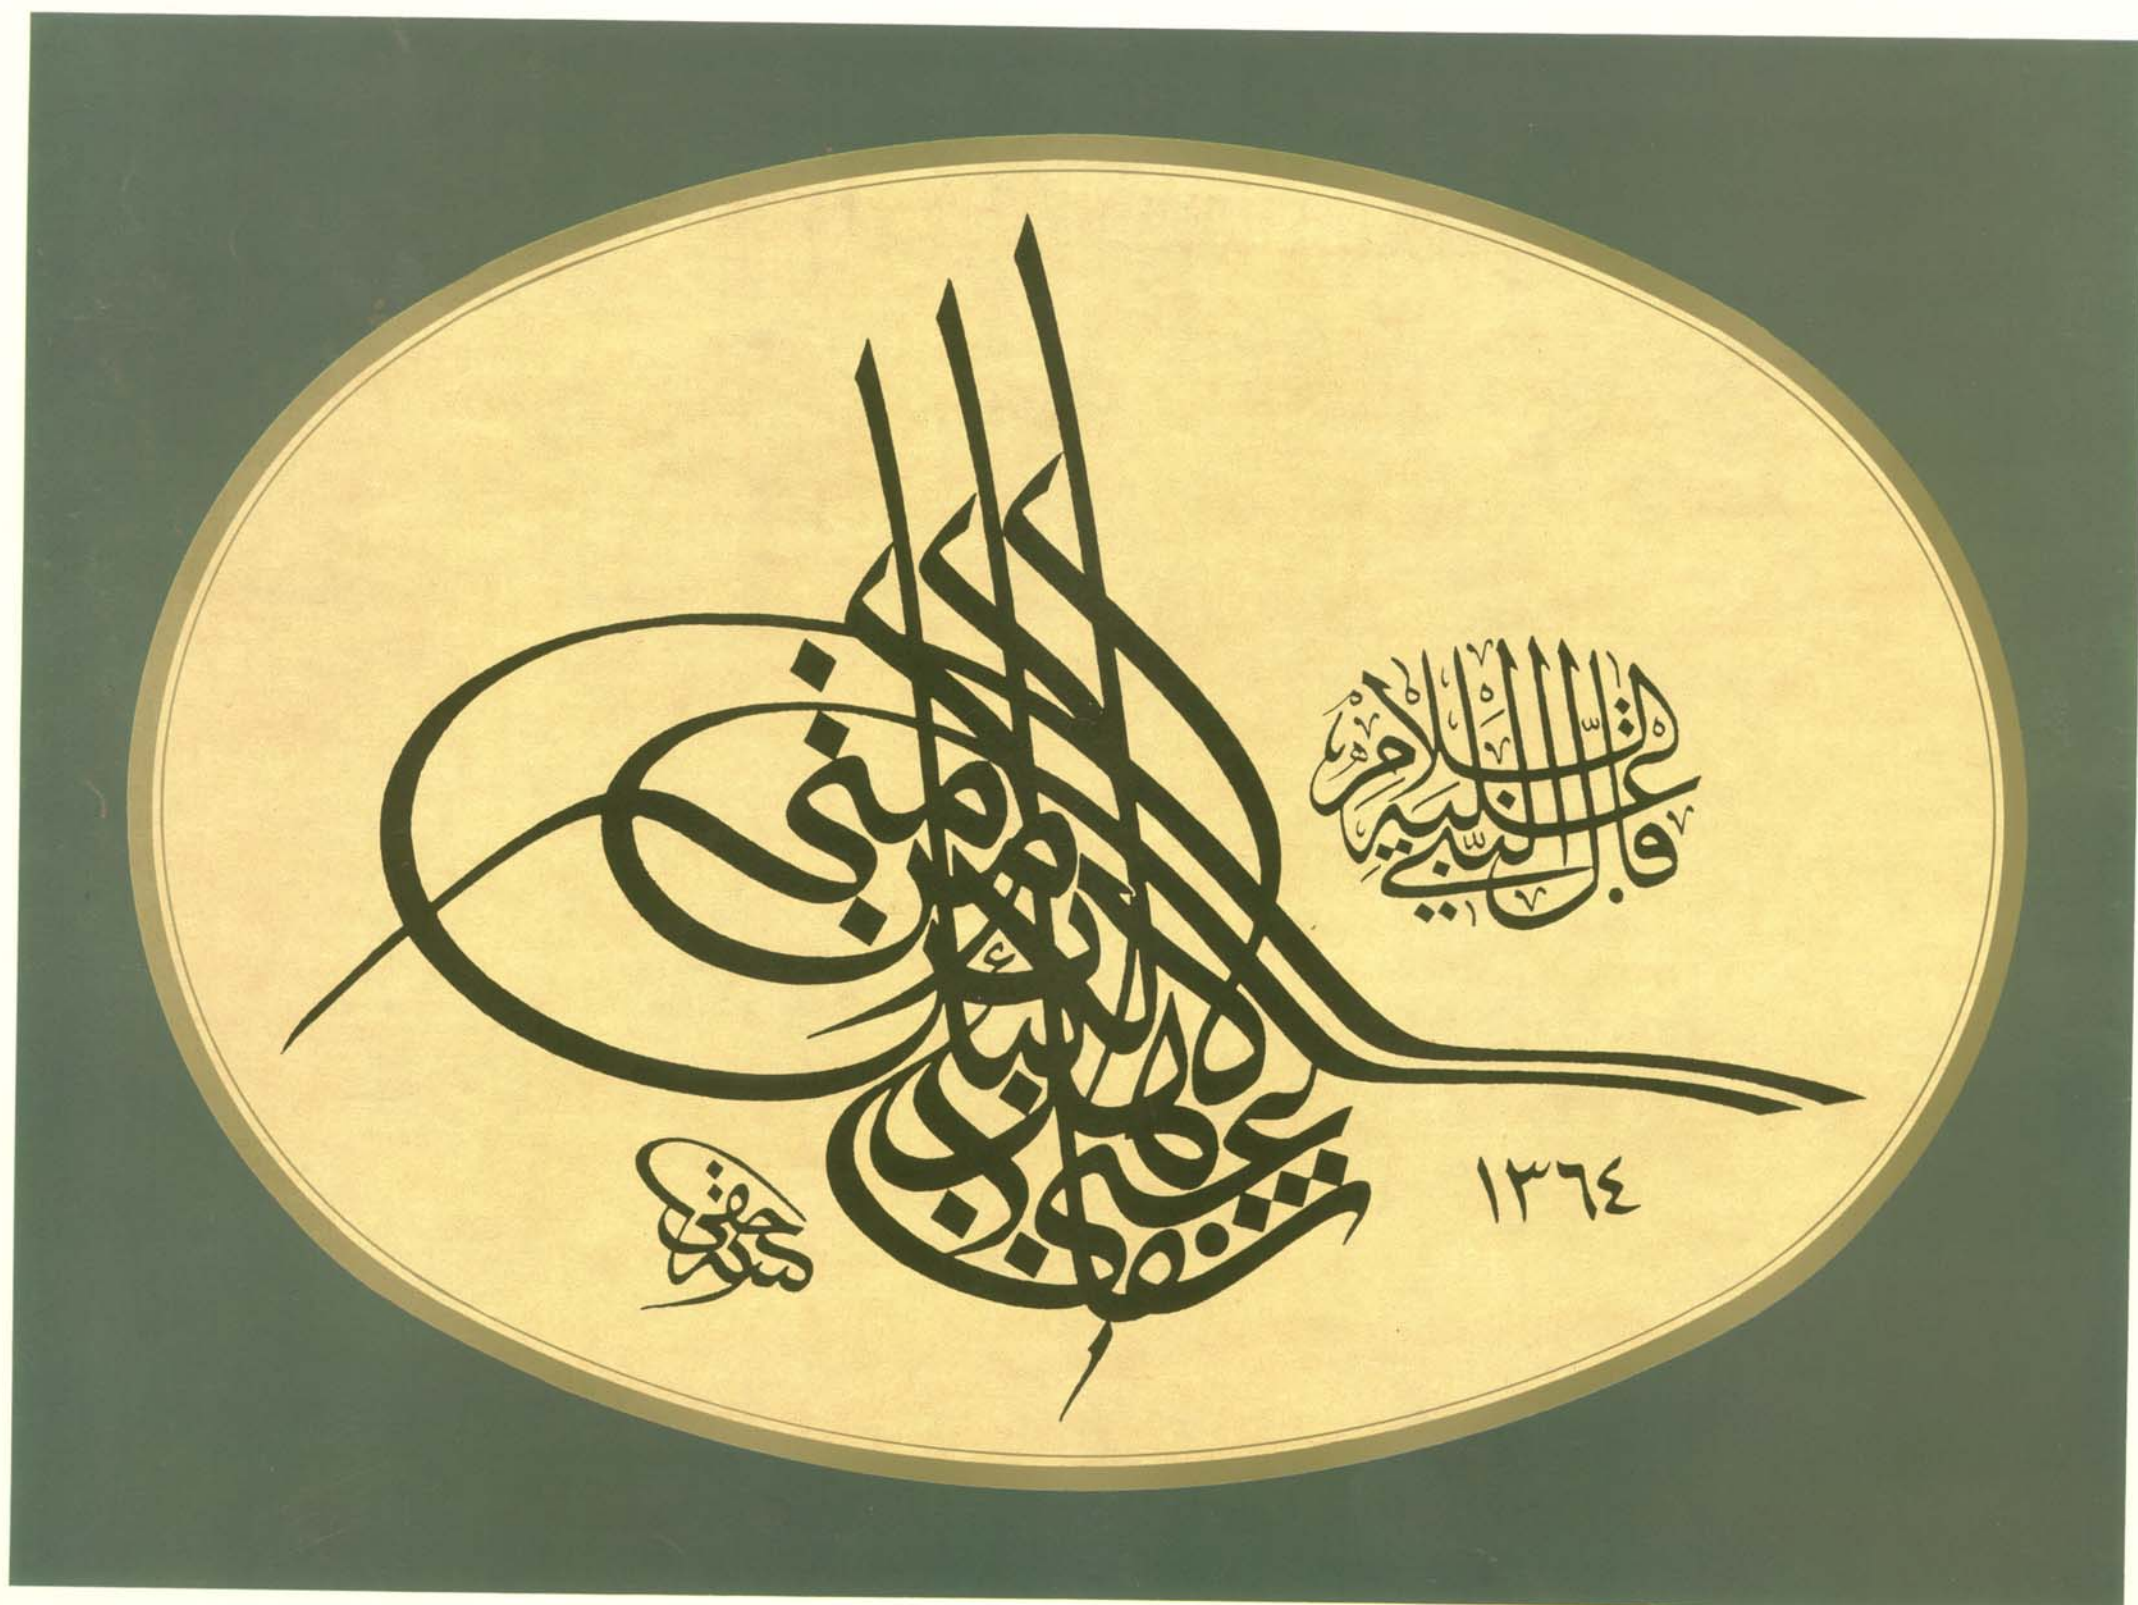 قال النبي عليه السلام
شفاعتي لأهل الكبائر من أمتي
١٣٦٤
حقي